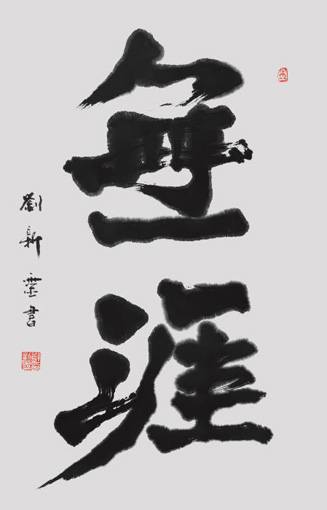 無涯
劉新書